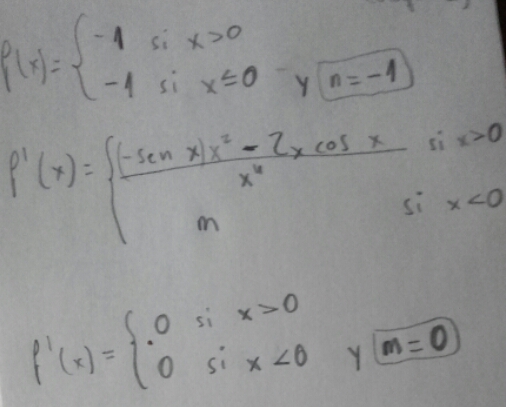 f(x) = { -1 si x>0
-1 si x≤0 y n=-1
f'(x) = { (-sen x)x² - 2x cos x / x⁴ si x>0
m si x<0
f'(x) = { 0 si x>0
0 si x<0 y m=0